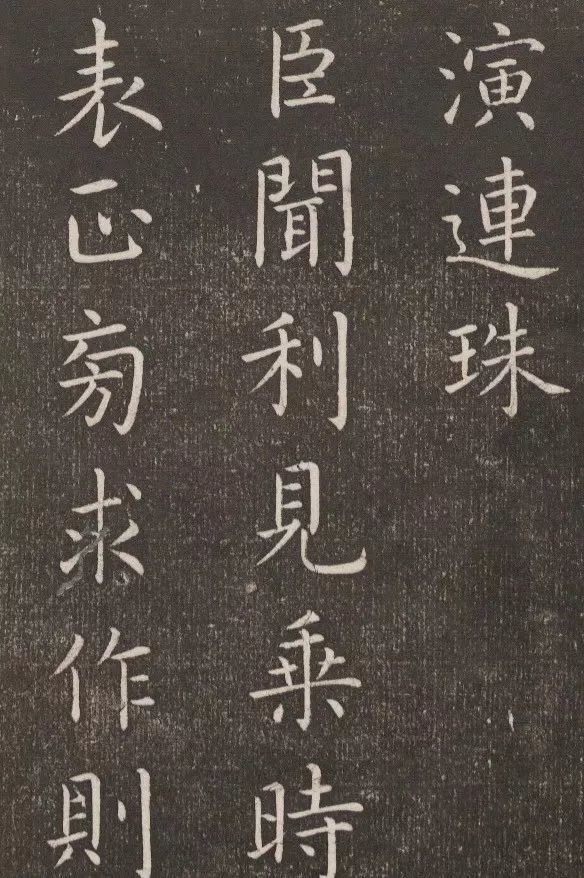 演連珠
臣聞利見乗時
表正㫄求作則